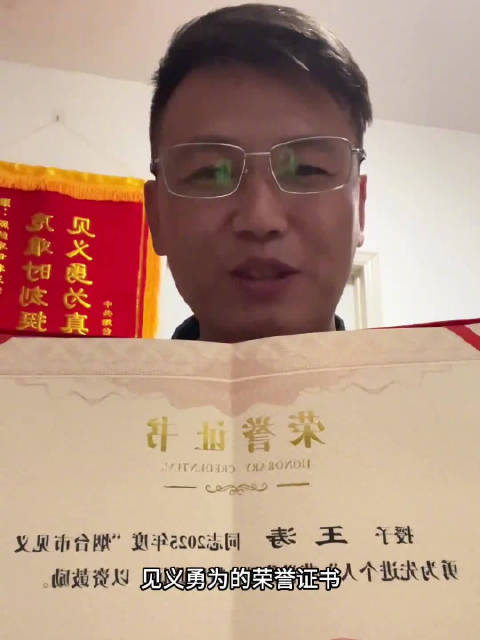 危难时刻挺
见义勇为真
中共烟台
荣誉证书
HONORARY CREDENTIAL
授予 王 涛 同志2025年度“烟台市见义
勇为先进个人 以资鼓励。
见义勇为的荣誉证书